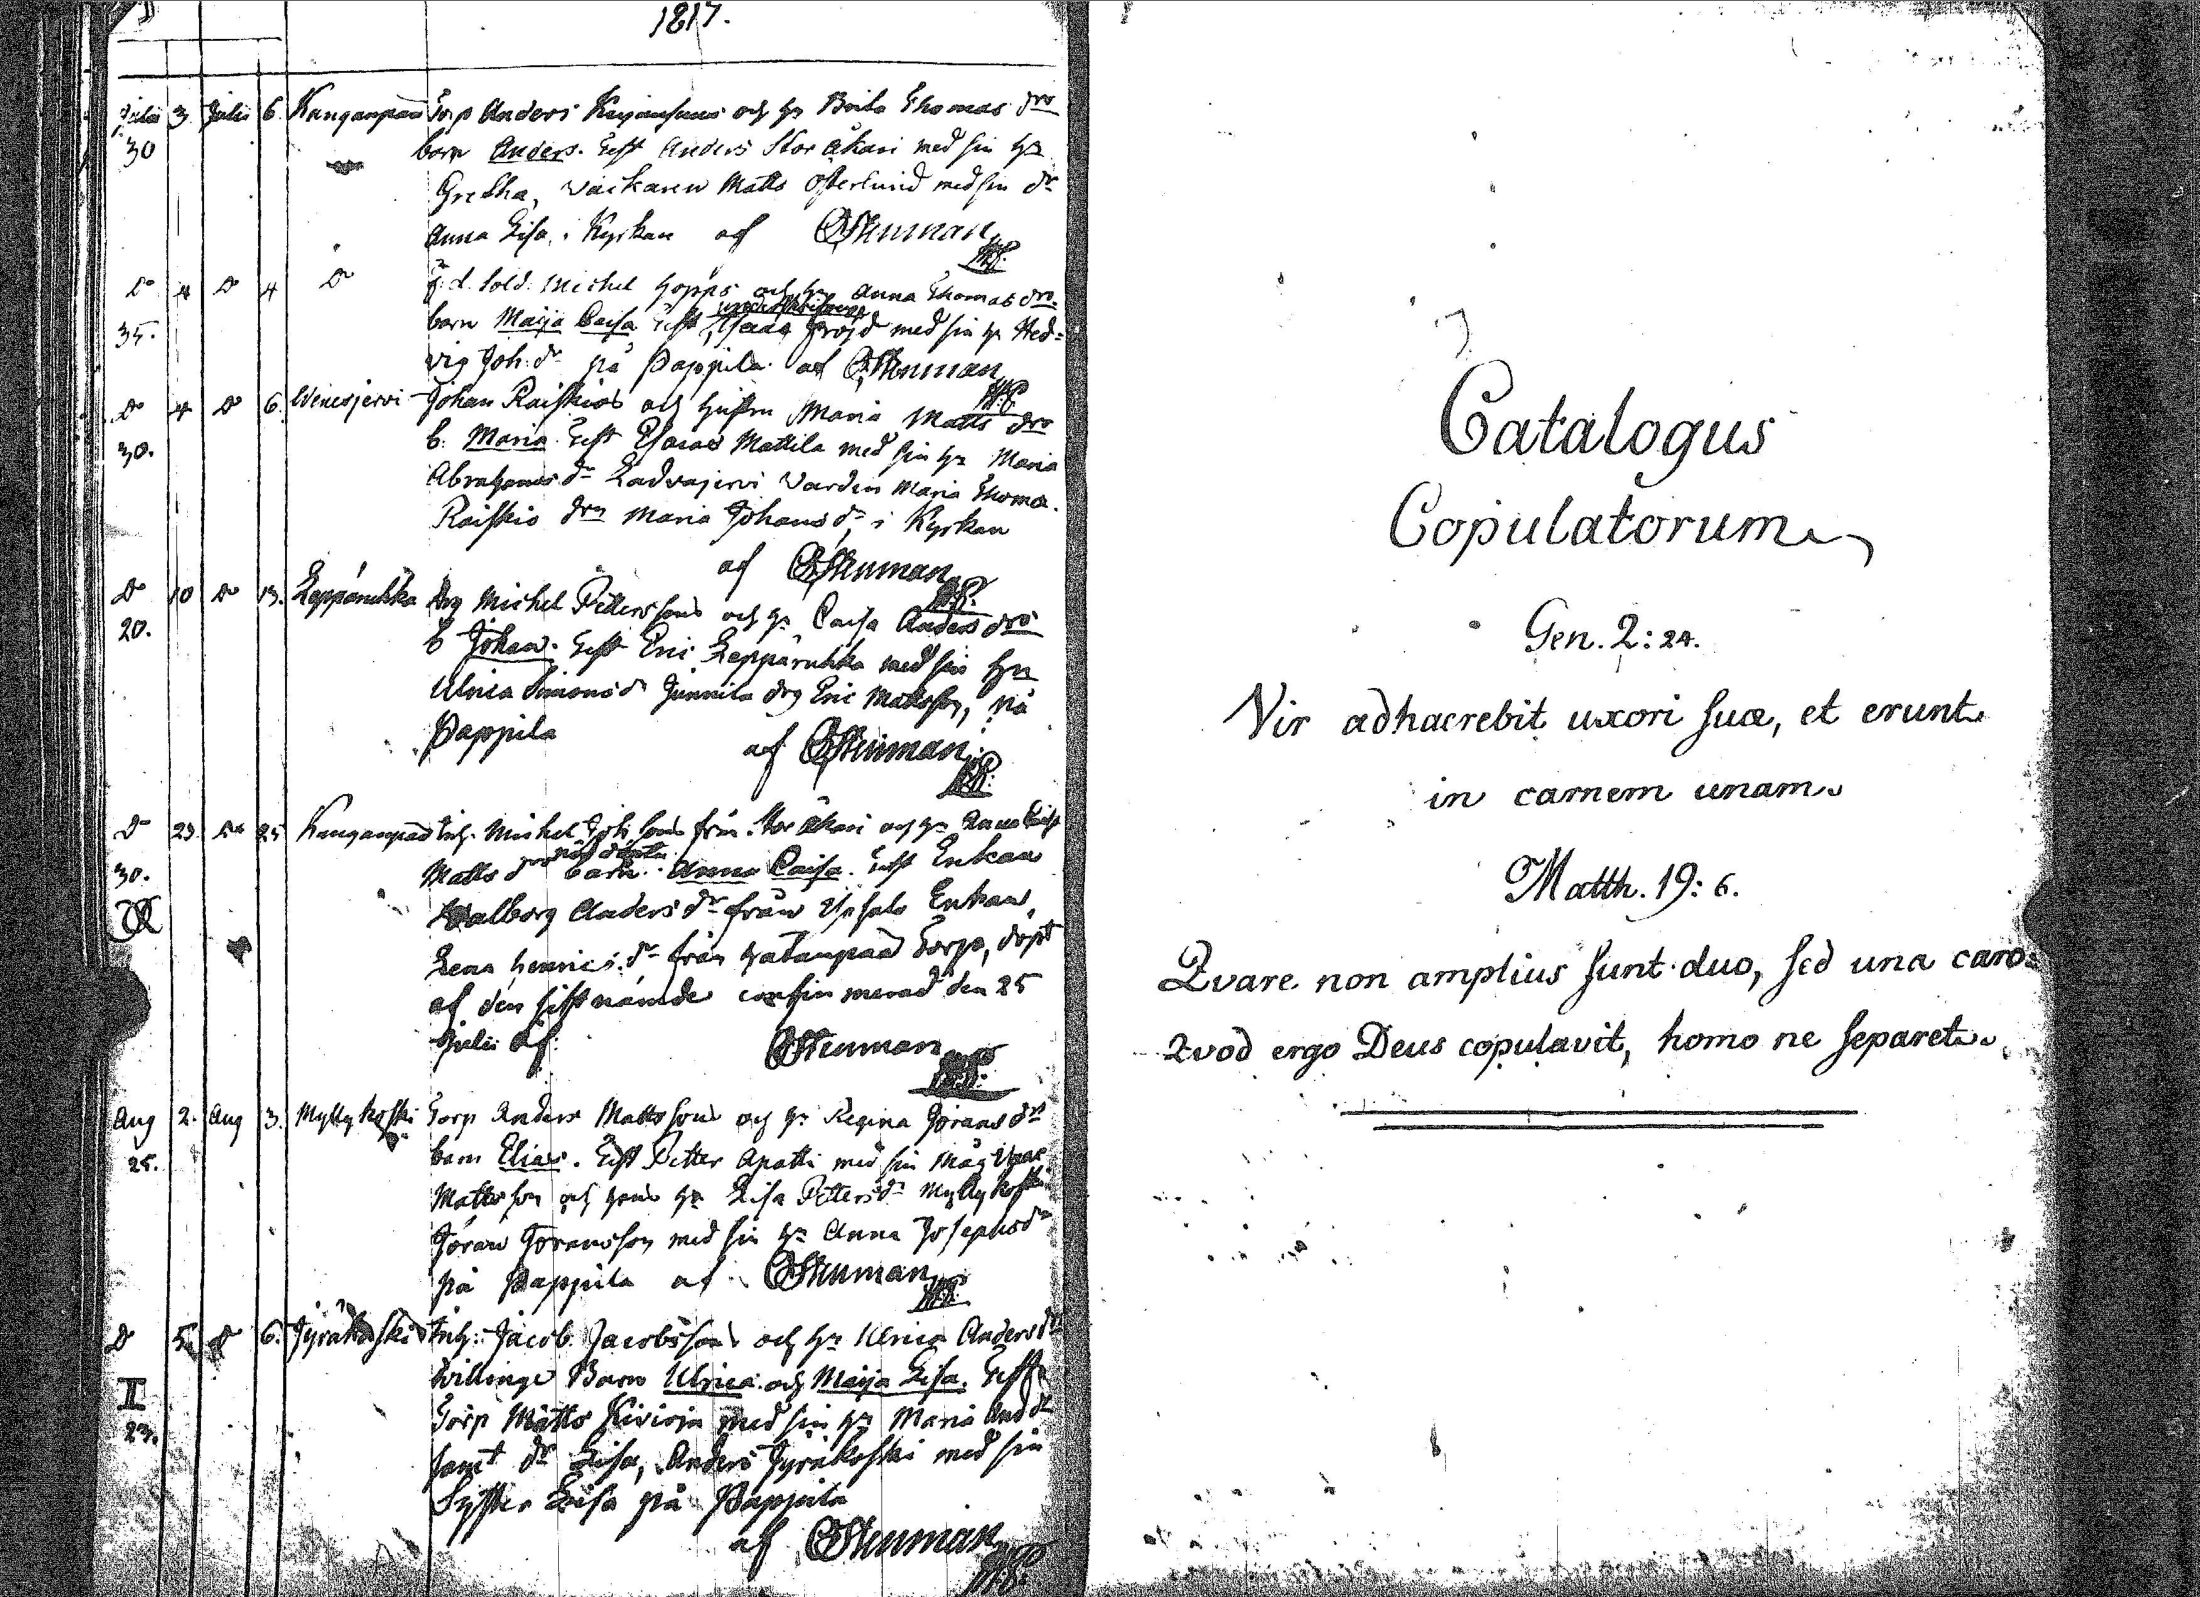 1817.
Julii 3. Julii 6. Kanganpää Torp Anders och h. Brita Thomas dr
30 barn Anders. Test Anders Storåkari med sin h.
Gretha, Matts Österlund med sin dr
Anna Lisa, i Kyrkan af CStenman
Do 4 Do 4 Do f. d. Sold. Michel Hopps och h. Anna Thomas dr
35. barn Maija Caisa Test Fröjd med sin h. Hed-
vig Joh. dr på Pappila af CStenman
Do 4 Do 6. Wenesjervi Johan Raiskios och hustru Maria Matts dr
30. b. Maria. Test Esaias Mattila med sin h. Maria
Abrahams dr Ladvajervi Maria Thoma.
Raiskio Maria Johans dr i Kyrkan
af CStenman
Do 10 Do 13. Leppäruhka drg Michel Petterssons och h. Caisa Anders dr
20. b Johan. Test Eric Leppäruhka med sin
Ulrica Simons dr Junnila drg Eric Mattsson, på
Pappila af CStenman
Do 23. Do 25 Kanganpää Inh. Michel Joh. sons från Storåkari och h. Anna
nöd döpta
30. Matts dr barn Anna Caisa. Test Enkan
Walborg Anders dr från Upsala Enkan
Lena Henrics dr från Torp, döpt
af den sistnämde den 25
Julii Af: CStenman
Aug 2. Aug 3. Myllykoski Torp Anders Mattssons och h. Regina Görans dr
25. barn Elias. Test Petter Apatti med sin måg
Mattsson och hans h. Lisa Petters dr Myllykoski
Jöran Göransson med sin h. Anna Josephs dr
på Pappila af CStenman
Do 5 Do 6. Jyräkoski Inh: Jacob Jacobssons och h. Ulrica Anders dr
II Tvillinge Barn Ulrica och Maija Lisa. Test
23. Torp Matts Kivioja med sin h. Maria And dr
samt dr Lisa, Anders Jyräkoski med sin
Syster Lisa på Pappila
af CStenman
Catalogus
Copulatorum
Gen. 2: 24.
Vir adhaerebit uxori suæ, et erunt
in carnem unam.
Matth. 19: 6.
Qvare non amplius sunt duo, sed una caro:
Qvod ergo Deus copulavit, homo ne separet.